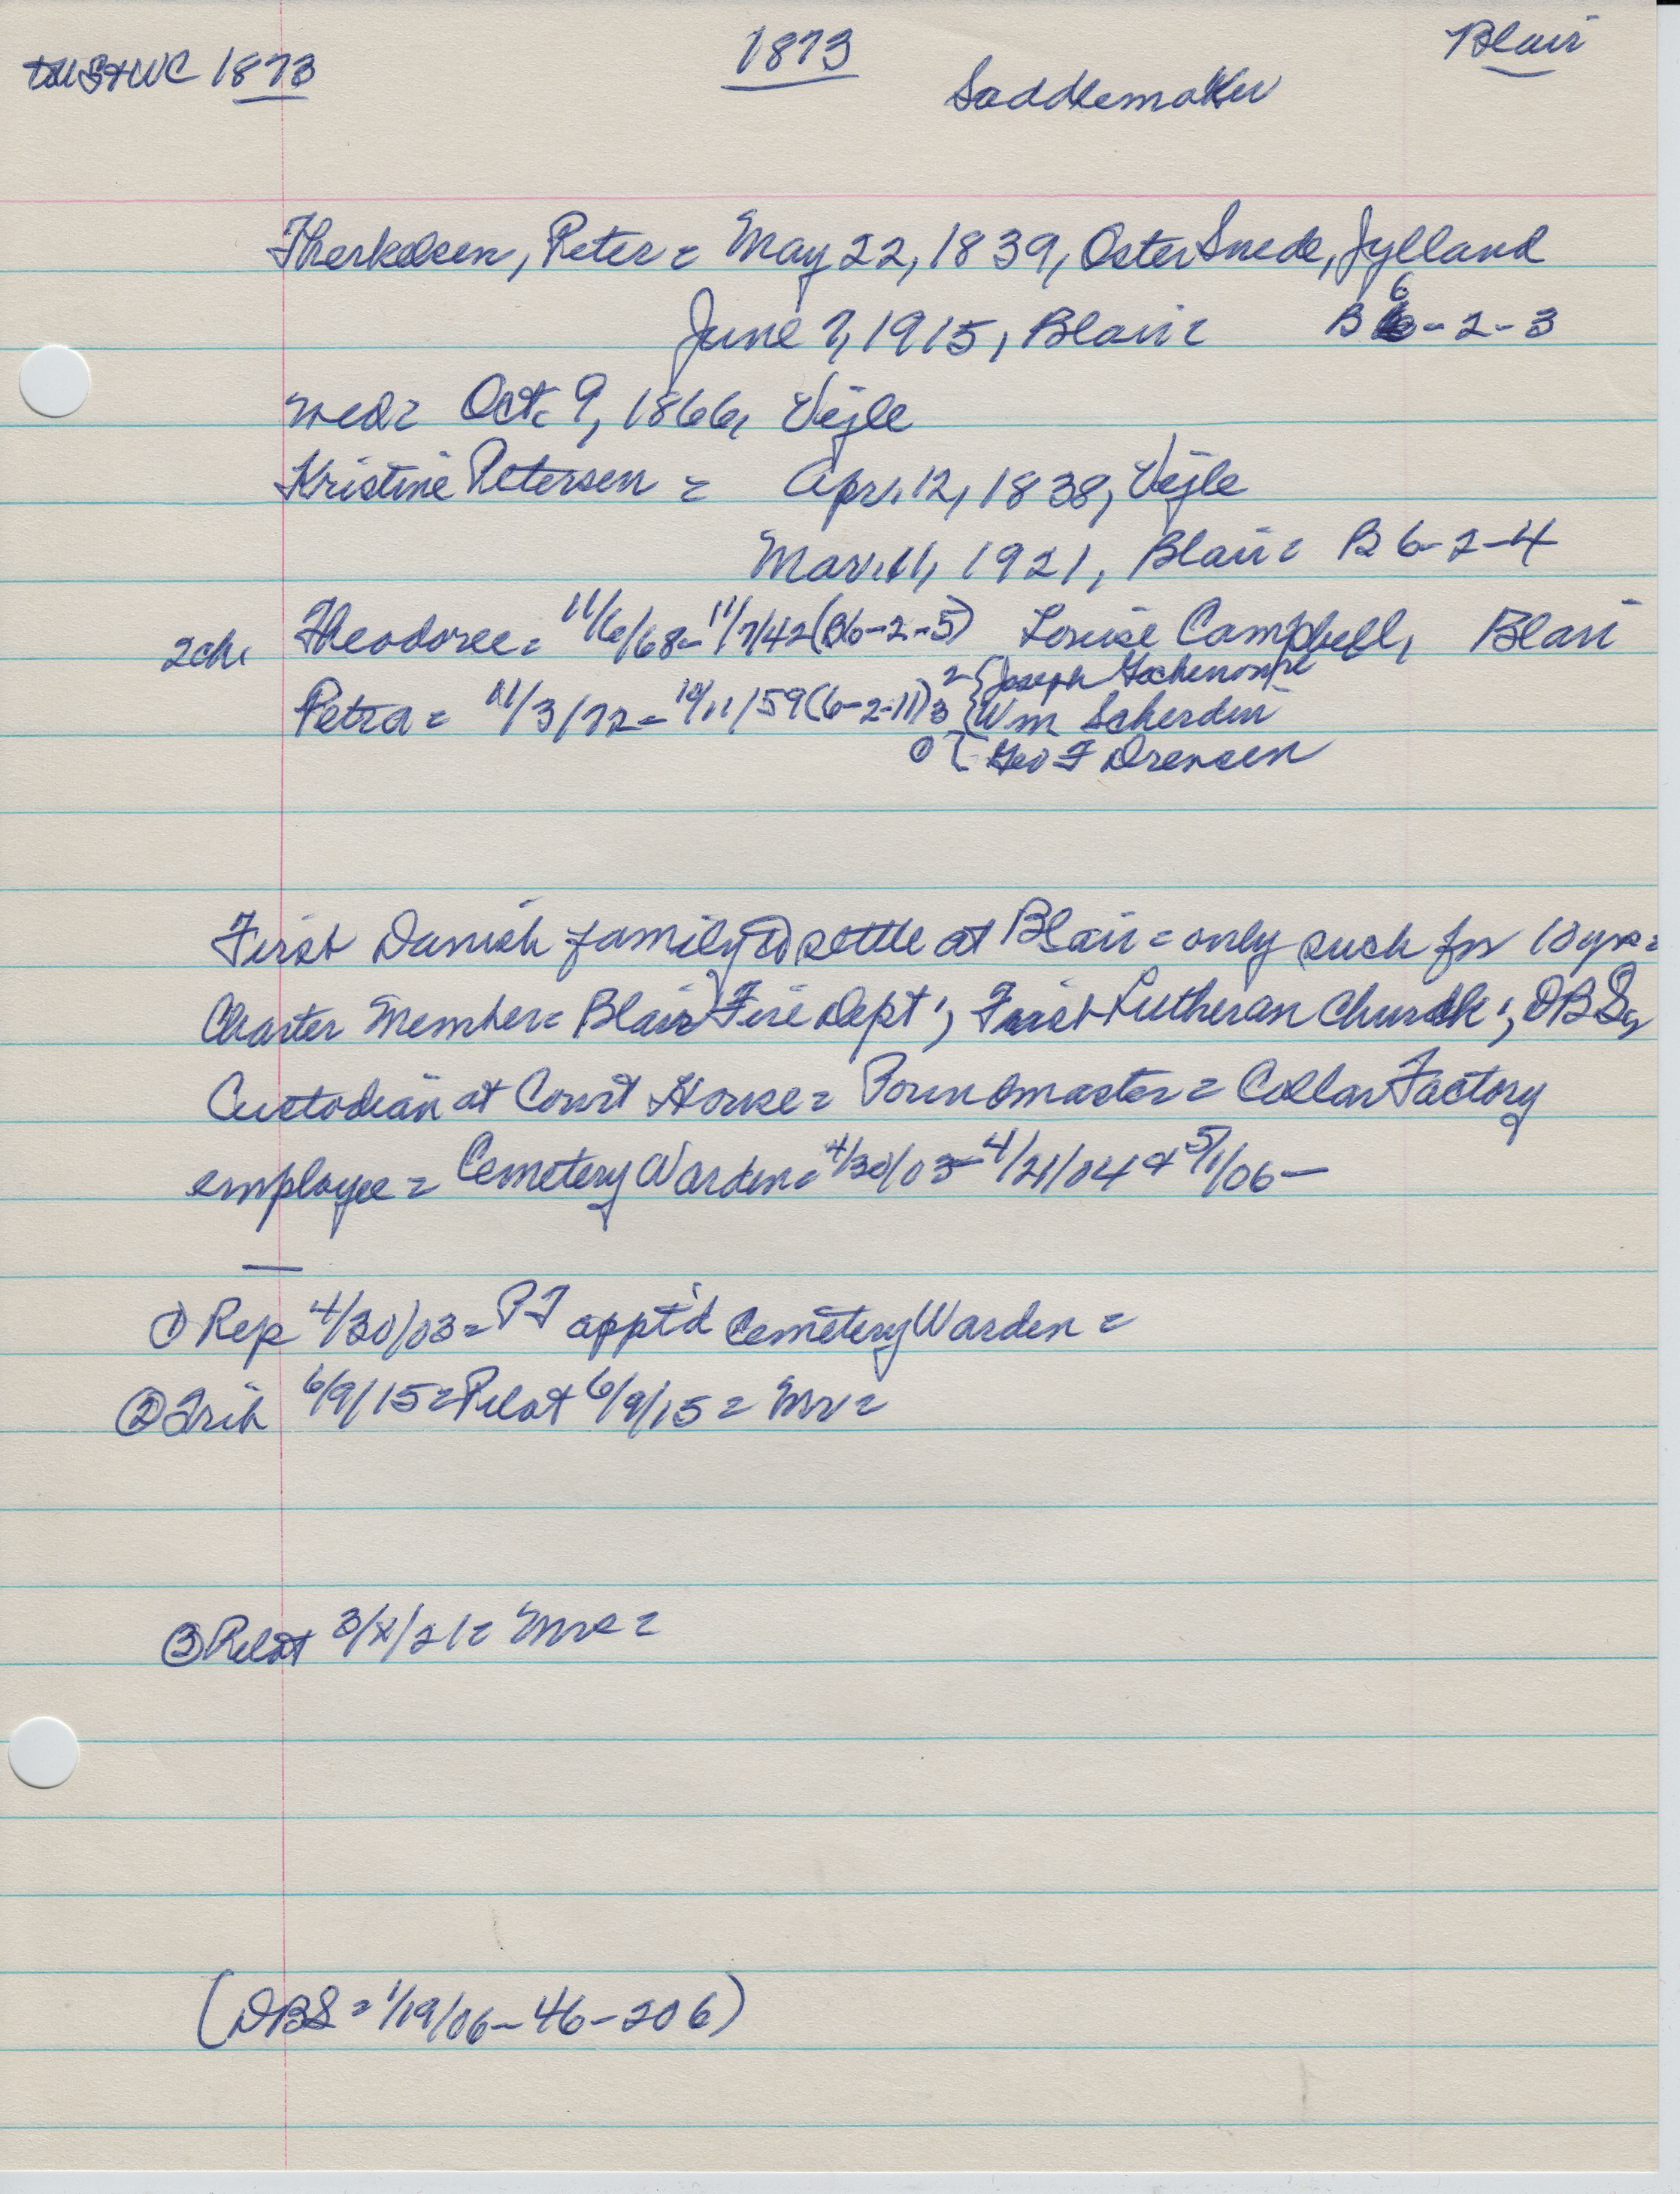 toUS+WC 1873
1873
Blair
Saddlemaker
Therkelsen, Peter = May 22, 1839, Oster Snede, Jylland
June 7, 1915, Blair = B 6-2-3
med = Oct. 9, 1866, Vejle
Kristine Petersen = Apr. 12, 1838, Vejle
Mar. 11, 1921, Blair = B 6-2-4
2ch. Theodore = 11/6/68 - 11/7/42 (B6-2-5) Louise Campbell, Blair
Petra = 11/3/72 - 10/11/59 (6-2-11) 2 { Joseph
3 { Wm Scherdin
① { Geo F Drensen
First Danish family to settle at Blair = only such for 10 yrs =
Charter Member = Blair Fire Dept; First Lutheran Church; DBS,
Custodian at Court House = Poundmaster = Collar Factory
employee = Cemetery Warden = 4/30/03 - 4/21/04 + 5/1/06 -
① Rep 4/30/03 = PT appt'd Cemetery Warden =
② Trib 6/9/15 = Pilot 6/9/15 = Mr =
③ Pilot 3/x/21 = Mrs =
(DBS = 1/19/06 - 46 - 206)